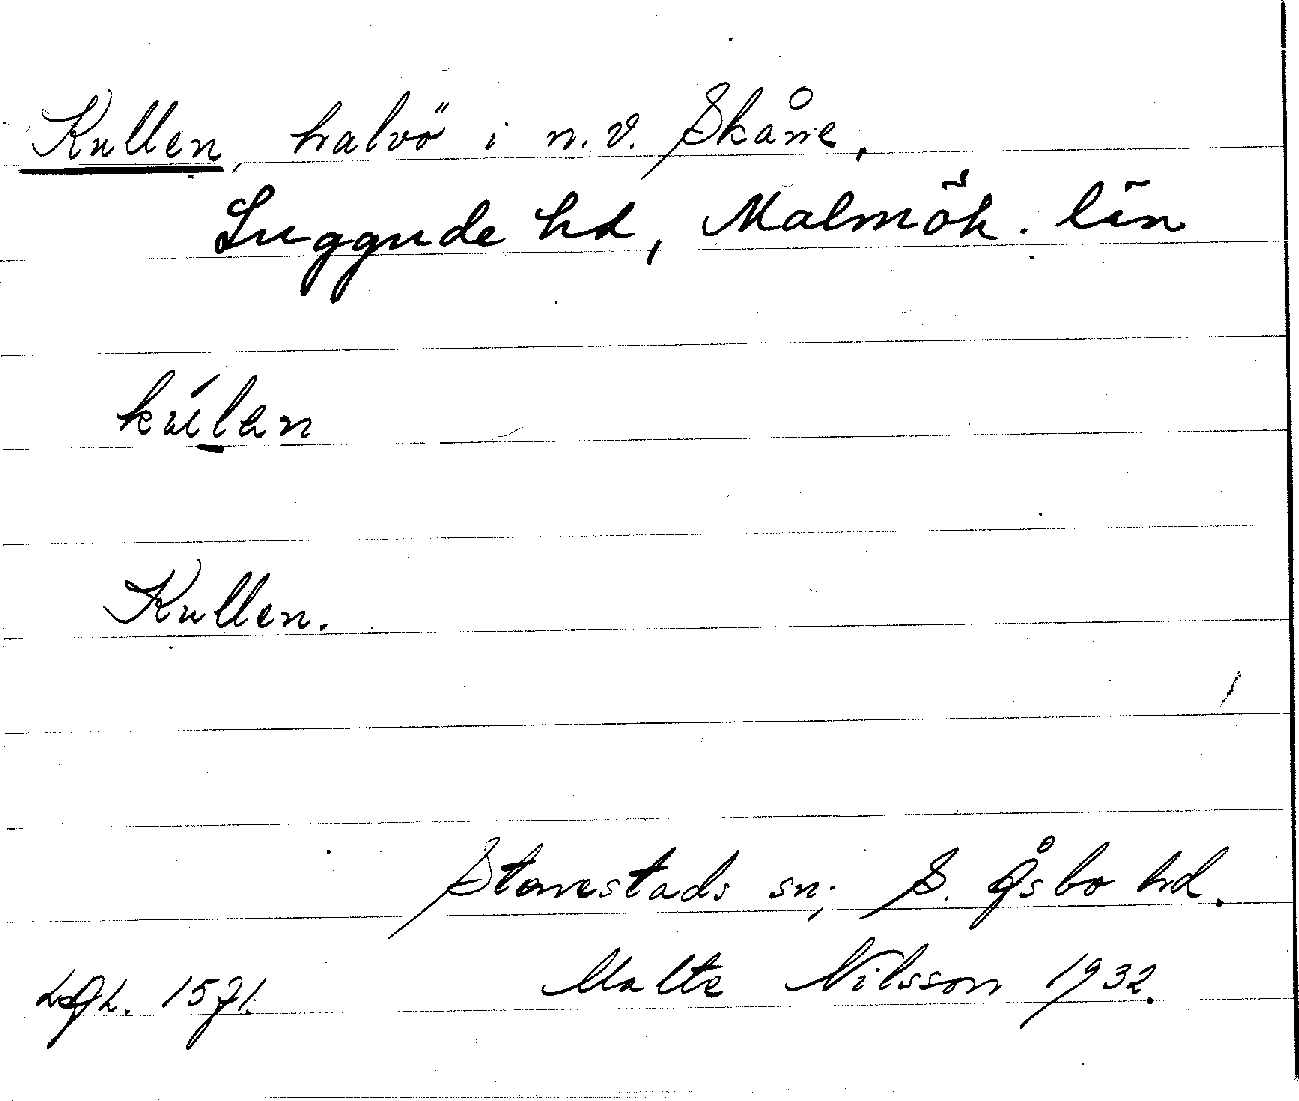 Kullen, halvö i n.v. Skåne,
Luggude hd, Malmöh. län
kúlan
Kullen.
Stenestads sn; S. Åsbo hd.
Malte Nilsson 1932.
LGL. 1571.